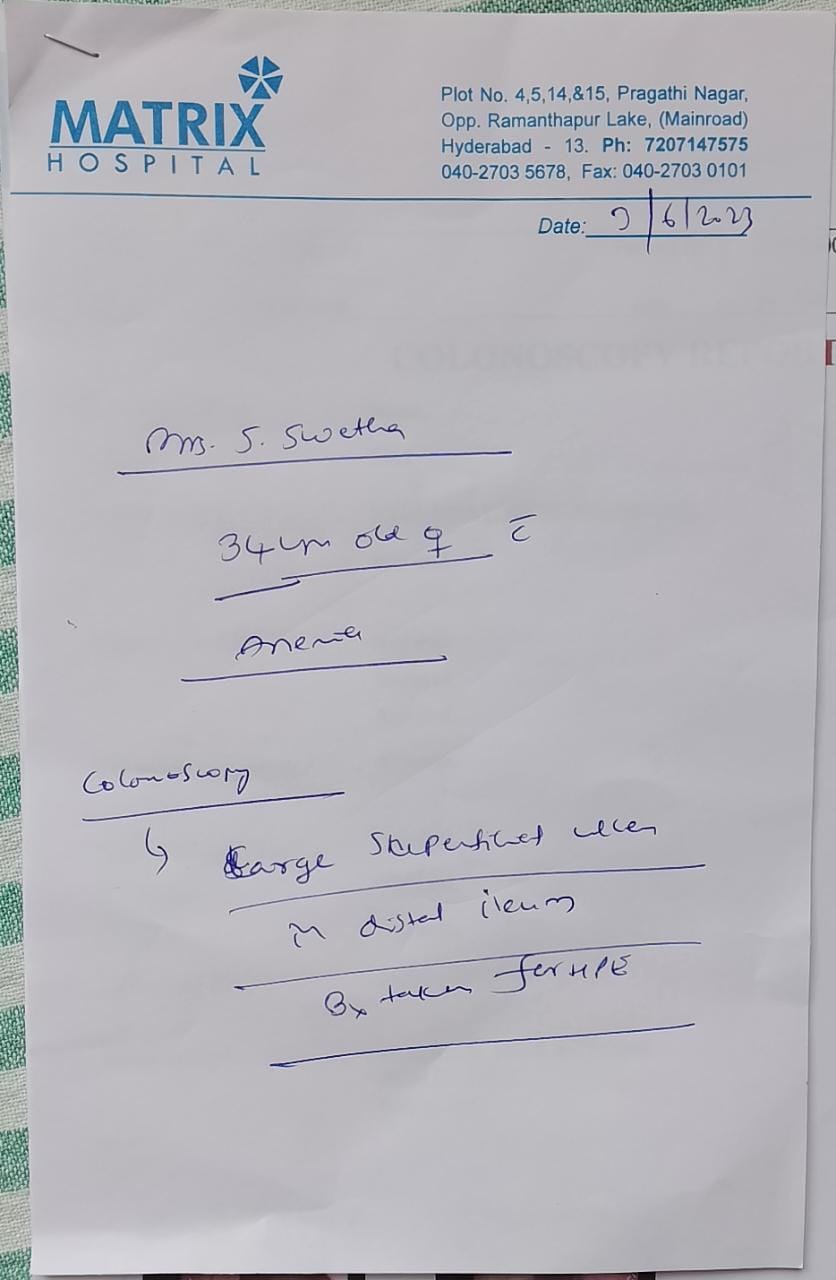 MATRIX
HOSPITAL
Plot No. 4,5,14,&15, Pragathi Nagar,
Opp. Ramanthapur Lake, (Mainroad)
Hyderabad - 13. Ph: 7207147575
040-2703 5678, Fax: 040-2703 0101
Date: /6/2023
COLONOSCOPY REPORT
Mrs. S. Swetha
34 yrs old ♀ c̄
Anemia
Colonoscopy
↳ Large Superficial ulcer
in distal ileum
Bx taken for HPE